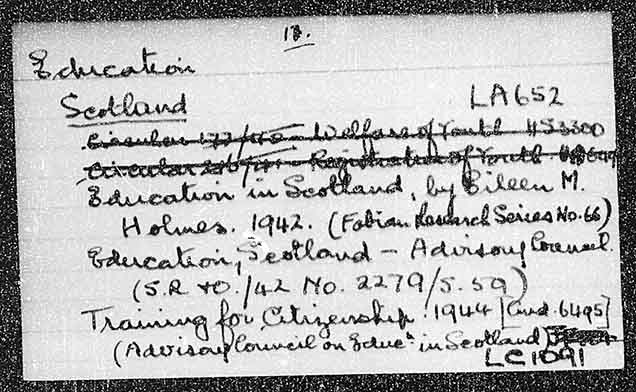 17.
Education
Scotland LA652
Circular 177/40 - Welfare of Youth HS3300
Circular /41 - Registration of Youth
Education in Scotland, by Eileen M.
Holmes. 1942. (Fabian Research Series No. 66)
Education, Scotland - Advisory Council.
(S.R &O./42 No. 2279/S.59)
Training for Citizenship. 1944 [Cmd. 6495]
(Advisory Council on Educn in Scotland)
LC1091